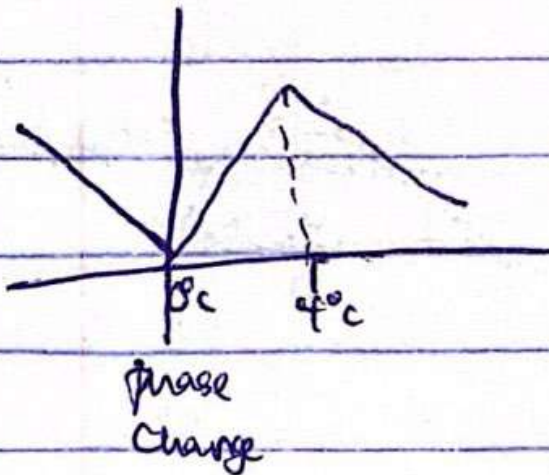 0°C 4°C
phase
Change